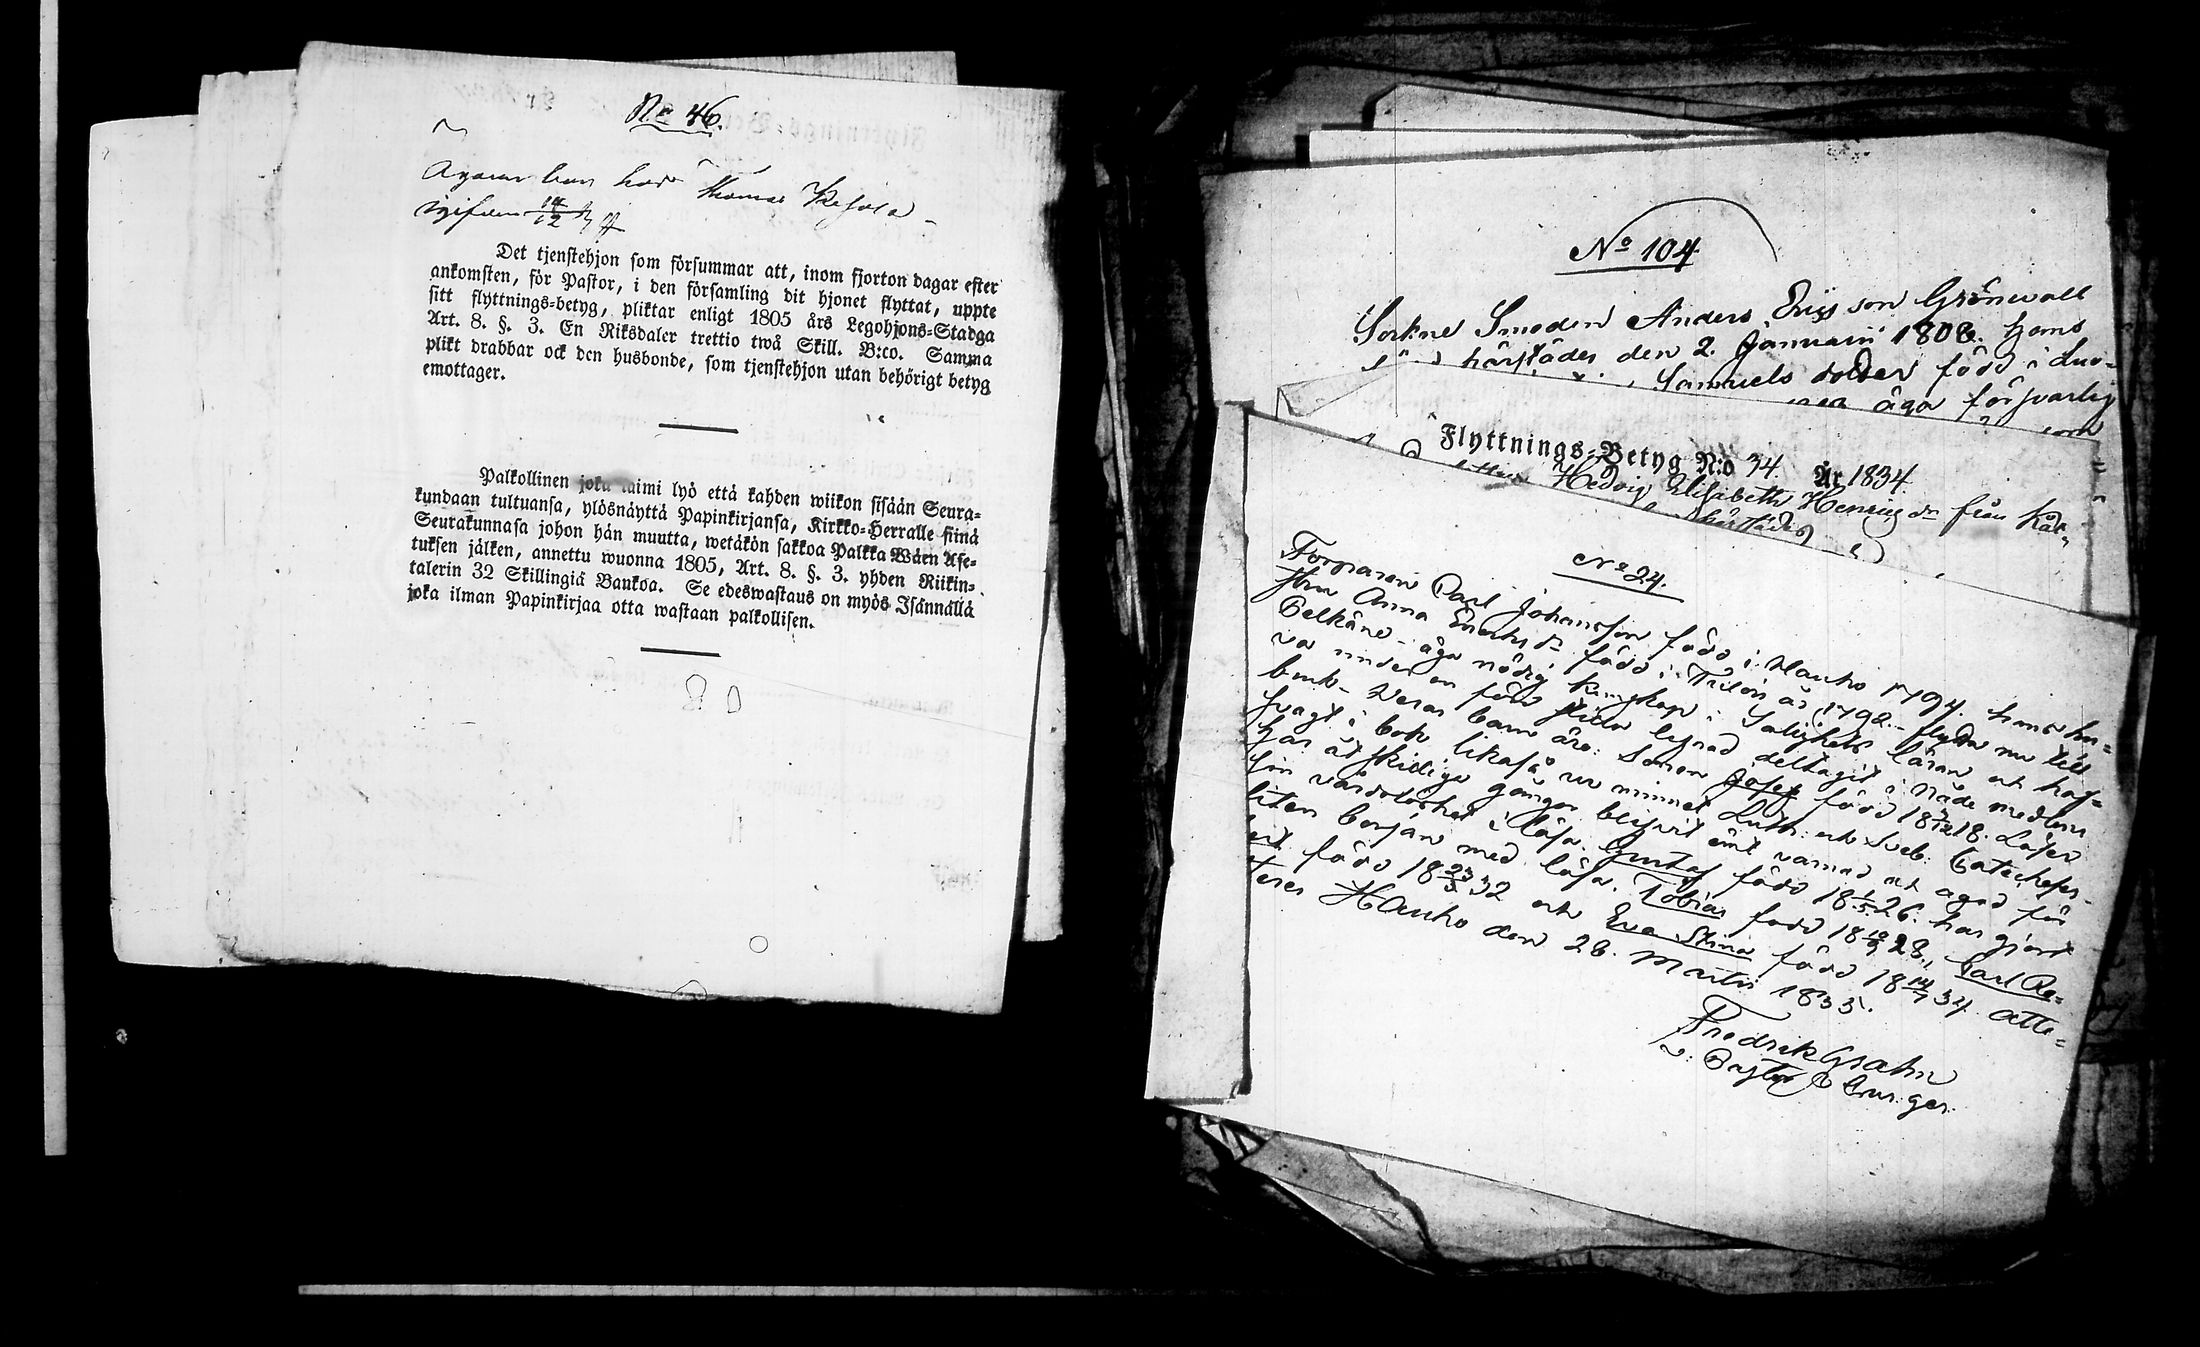 No 46.
han hos Thomas
14/12
Det tjenstehjon som försummar att, inom fjorton dagar efter
ankomsten, för Pastor, i den församling dit hjonet flyttat, uppte
sitt flyttnings=betyg, pliktar enligt 1805 års Legohjons=Stadga
Art. 8. §. 3. En Riksdaler trettio twå Skill. B:co. Samma
plikt drabbar ock den husbonde, som tjenstehjon utan behörigt betyg
emottager.
Palkollinen joka laimi lyö että kahden wiikon sisään Seura=
kundaan tultuansa, ylösnäyttä Papinkirjansa, Kirkko=Herralle siinä
Seurakunnasa johon hän muutta, wetäkön sakkoa Palkka Wäen Ase=
tuksen jälken, annettu wuonna 1805, Art. 8. §. 3. yhden Riikin=
talerin 32 Skillingiä Bankoa. Se edeswastaus on myös Isännällä
joka ilman Papinkirjaa otta wastaan palkollisen.
No 104.
Sockne Smeden Anders Ericsson Grönwall
härstädes den 2. Januarii 1808. hans
Samuels dotter född i Luo=
äga försvarlig
Flyttnings=Betyg N:o 34 År 1834.
Hedvig Elisabeth Henrics dr från Kår=
härstädes
No 24.
Torparen Carl Johansson född i Hauho 1794. hans hu=
stru Anna Ericks dr född i Tulois år 1792. flytta nu till
Pelkäne - äga nödig kunskap i Salighets läran och haf=
va under en förd stilla lefnad deltagit i Nåde medlens
bruk - Deras barn äro: Sonen Josef född 18 3/12 18. Läser
svagt i bok likaså ur minnet Luth: och Sveb: Cateches -
har åtskilliga gångor blifvit ömt varnad och agad för
sin vårdslöshet i läsa. Gustaf född 18 1/5 26. har gjort
liten början med läsa. Tobias född 18 10/9 28., Carl Re=
 född 18 23/3 32 och Eva Stina född 18 14/7 34. Atte=
steres Hauho den 28. Martii 1835.
Fredrik Grahn
v: Pastor